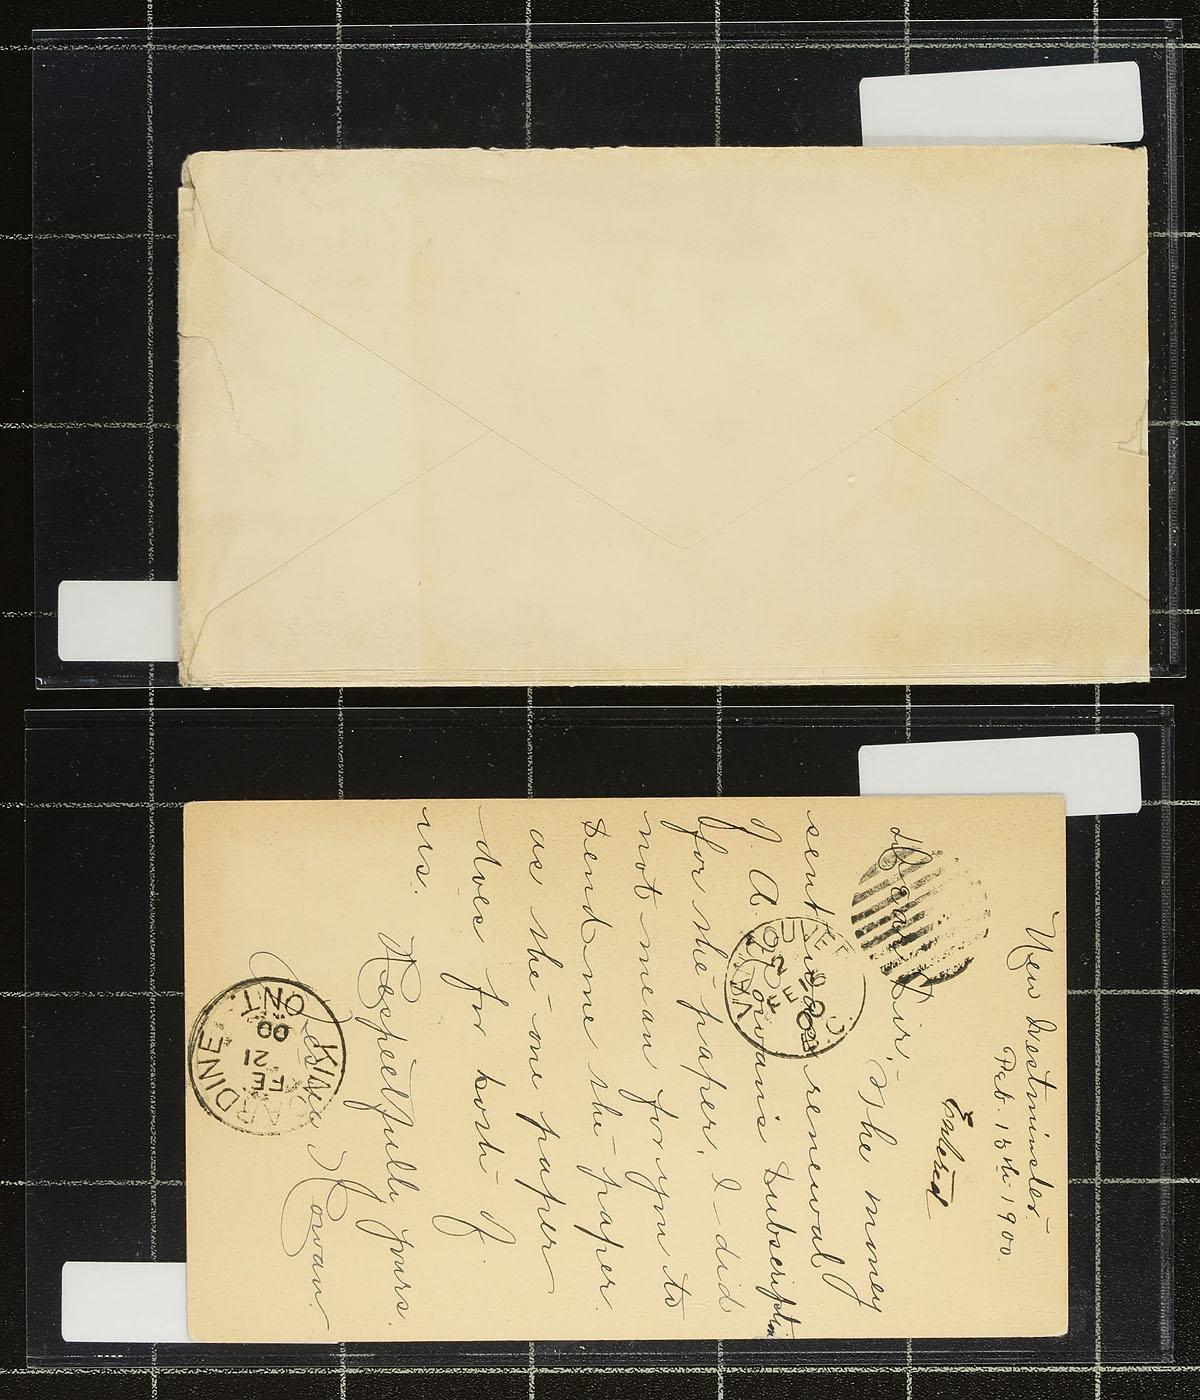 New Westminster.
Feb. 15th 1900.
Entered
Dear Sir, The money
sent was renewal of
J. A. Cowan's subscription
for the paper. I did
not mean for you to
send me the paper.
as the one paper
does for both of
us.
Respectfully yours.
Cowan.
KINCARDINE
FE 21
00
ONT.